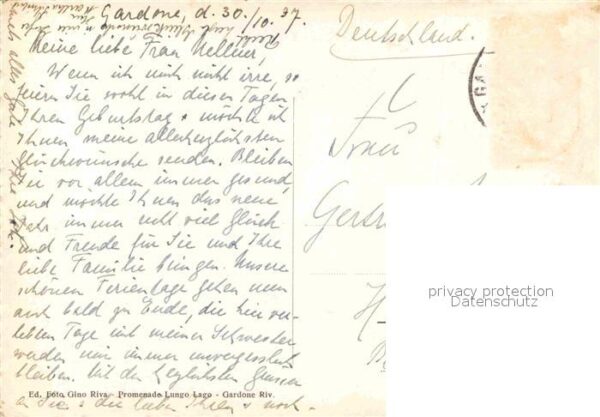 Gardone, d. 30./10. 37.
Meine liebe Frau Kellner,
Wenn ich mich nicht irre, so
feiern Sie wohl in diesen Tagen
Ihren Geburtstag & möchte ich
Ihnen meine allerherzlichsten
Glückwünsche senden. Bleiben
Sie vor allem immer gesund,
und möchte Ihnen das neue
Jahr immer recht viel Glück
und Freude für Sie und Ihre
liebe Familie bringen. Unsere
schönen Ferientage gehen nun
auch bald zu Ende, die hier ver-
lebten Tage mit meiner Schwester
werden mir immer unvergesslich
bleiben. Mit den herzlichsten Grüssen
an Sie & die lieben Ihren & noch-
mals alles Gute
Ed. Foto Gino Riva - Promenade Lungo Lago - Gardone Riv.
Deutschland.
GA
Frau
Gertr
H
privacy protection
Datenschutz